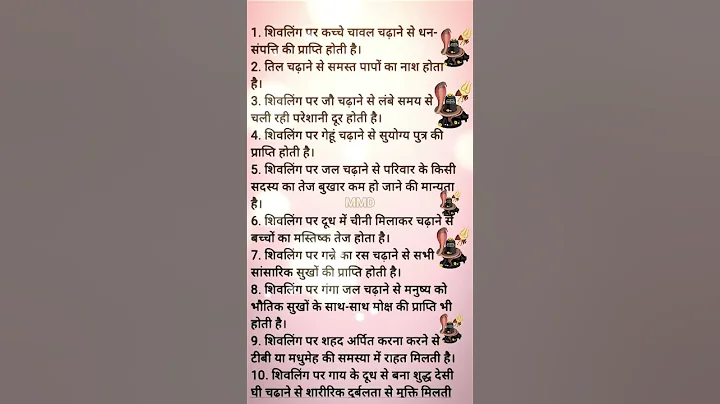 1. शिवलिंग पर कच्चे चावल चढ़ाने से धन-
संपत्ति की प्राप्ति होती है।
2. तिल चढ़ाने से समस्त पापों का नाश होता
है।
3. शिवलिंग पर जौ चढ़ाने से लंबे समय से
चली रही परेशानी दूर होती है।
4. शिवलिंग पर गेहूं चढ़ाने से सुयोग्य पुत्र की
प्राप्ति होती है।
5. शिवलिंग पर जल चढ़ाने से परिवार के किसी
सदस्य का तेज बुखार कम हो जाने की मान्यता
है।
MMD
6. शिवलिंग पर दूध में चीनी मिलाकर चढ़ाने से
बच्चों का मस्तिष्क तेज होता है।
7. शिवलिंग पर गन्ने का रस चढ़ाने से सभी
सांसारिक सुखों की प्राप्ति होती है।
8. शिवलिंग पर गंगा जल चढ़ाने से मनुष्य को
भौतिक सुखों के साथ-साथ मोक्ष की प्राप्ति भी
होती है।
9. शिवलिंग पर शहद अर्पित करना करने से
टीबी या मधुमेह की समस्या में राहत मिलती है।
10. शिवलिंग पर गाय के दूध से बना शुद्ध देसी
घी चढ़ाने से शारीरिक दुर्बलता से मुक्ति मिलती